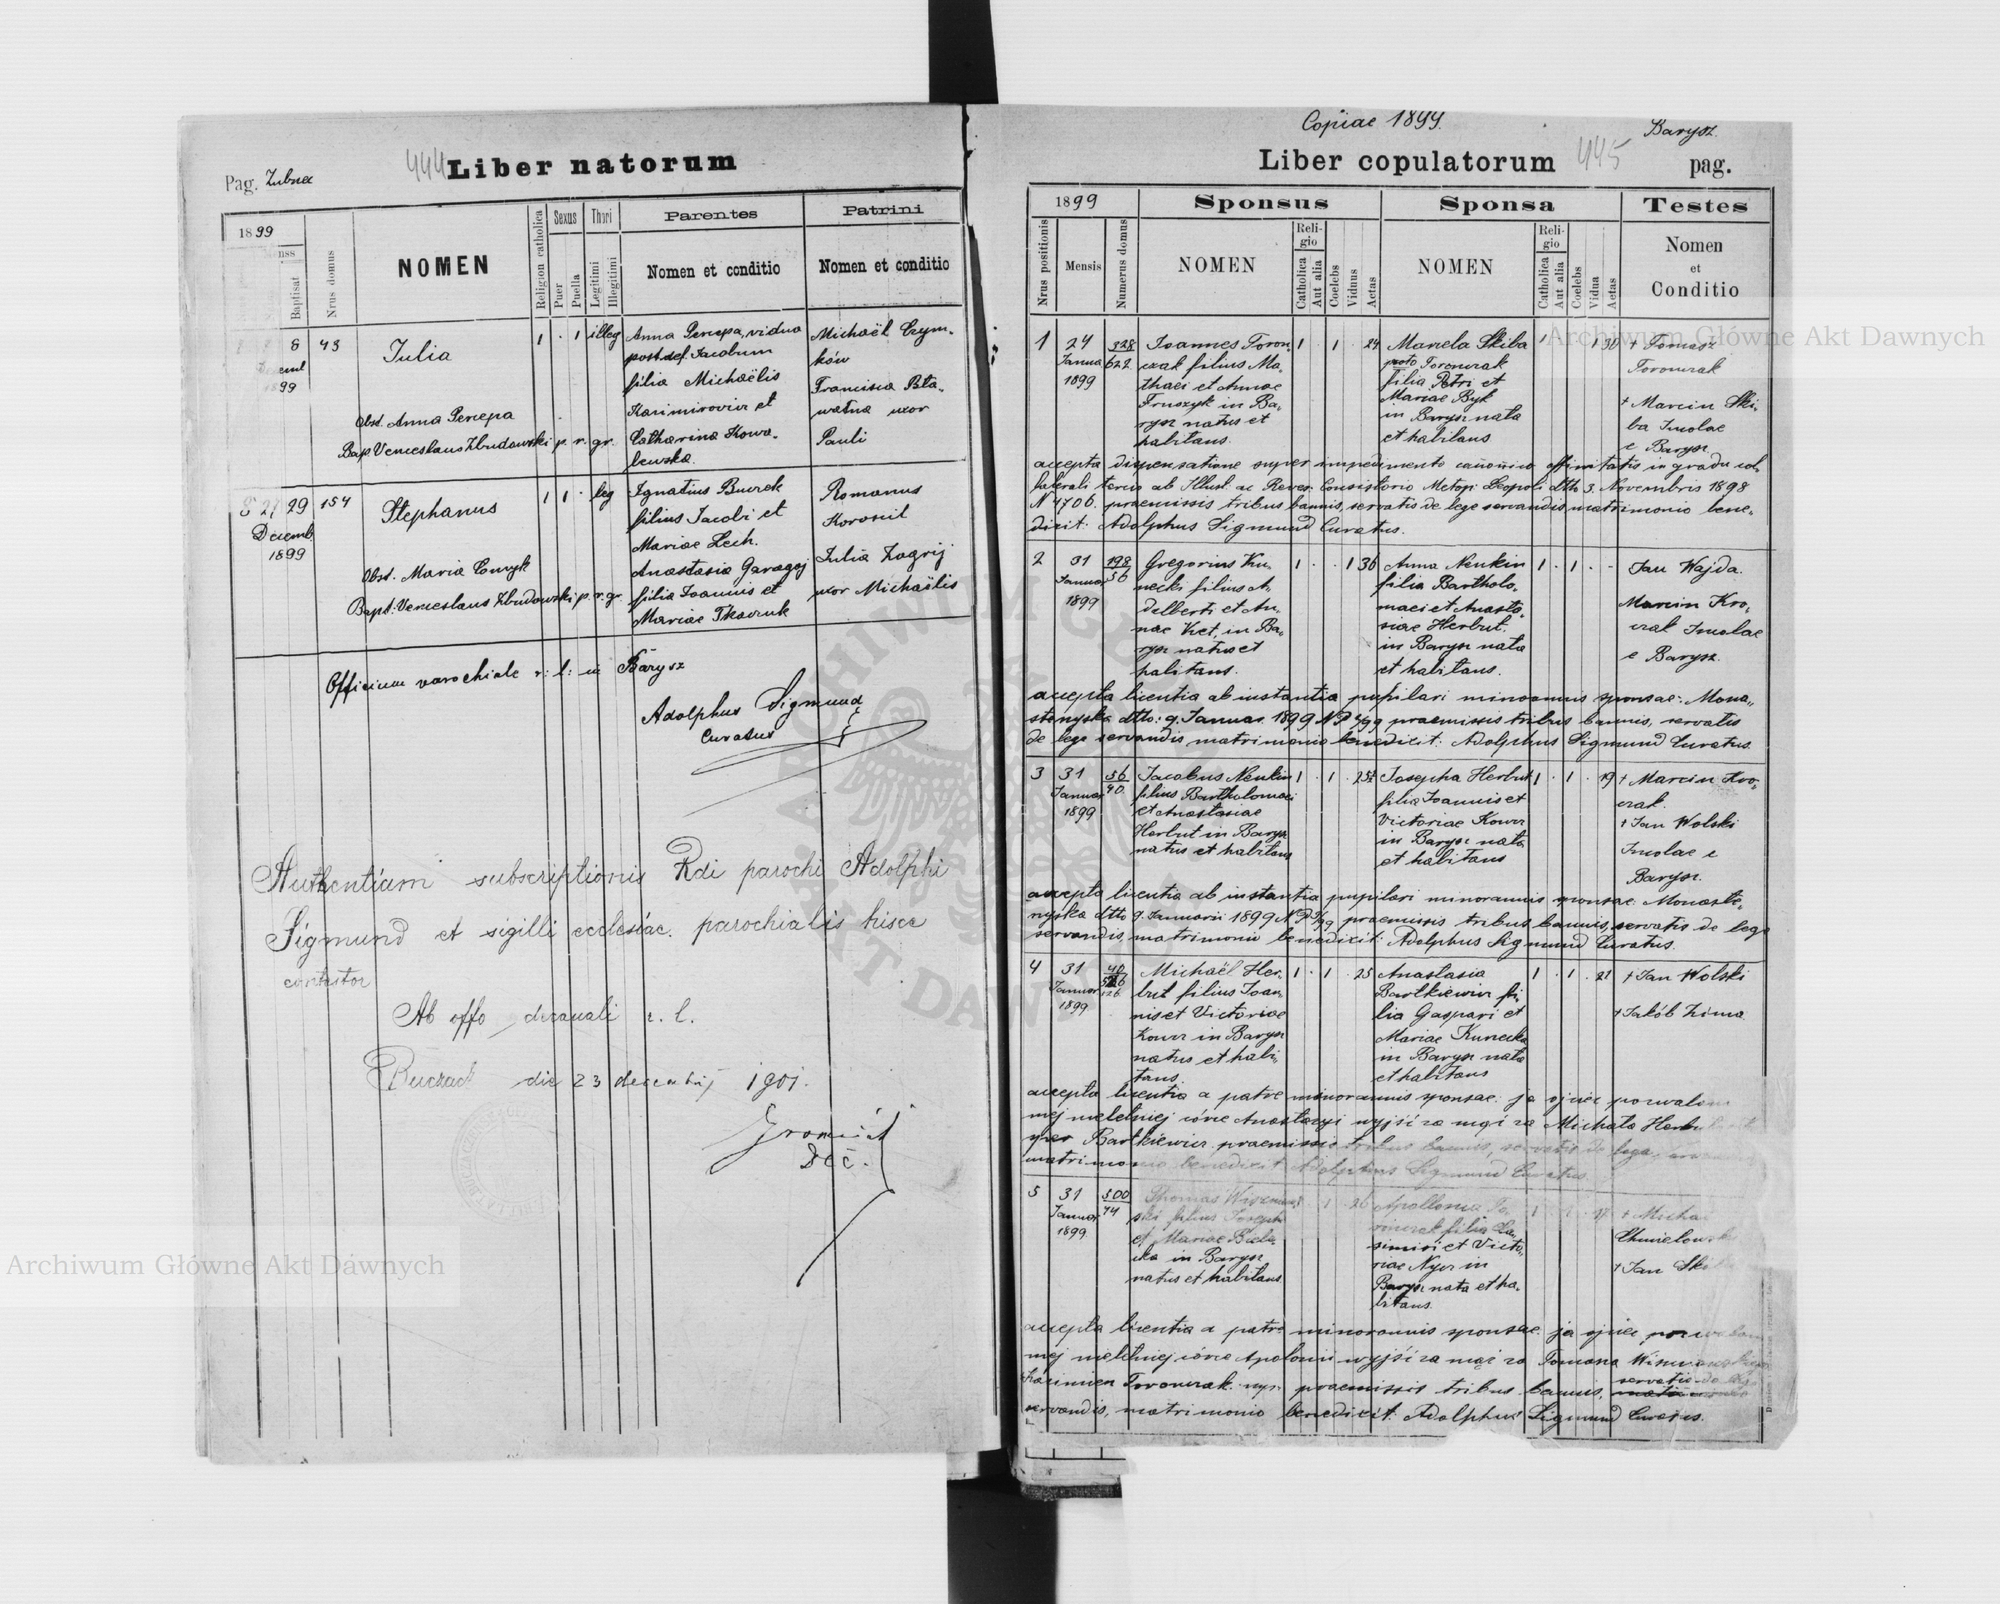 Pag. Zubrzec
444
Liber natorum
1899
Baptisat
Nrus domus
NOMEN
Religion catholica
Sexus
Puer
Puella
Thori
Legitimi
Illegitimi
Parentes
Nomen et conditio
Patrini
Nomen et conditio
8
1899
43
Iulia
1 . 1 illeg
Obst. Anna
Bapt Venceslaus Zbudowski p. r. gr.
Anna vidua
post def. Jacobum
filia Michaëlis
Kazimirovicz et
Catharina Kowa-
lewska.
Michaël Czym-
ków
Francisca
uxor
Pauli
27 29
Decemb
1899
154
Stephanus
1 1 . leg
Obst. Maria
Bapt: Venceslaus Zbudowski p. r. gr.
Ignatius Burek
filius Jacobi et
Mariae Lech.
Anastasia
filia Joannis et
Mariae Tkaczuk
Romanus
Iulia Zagrij
uxor Michaëlis
Officium parochiale r: l: in Barysz
Adolphus Sigmund
Curatus
Authentiam subscriptionis Rdi parochi Adolphi
Sigmund et sigilli ecclesiae parochialis hisce
contestor
Ab offo decanali r. l.
Buczacz die 23 decembris 1901.
Dec.
Copiae 1899.
Barysz
Liber copulatorum
445
pag.
1899
Sponsus
Sponsa
Testes
Nrus positionis
Mensis
Numerus domus
NOMEN
Religio
Catholica
Aut alia
Coelebs
Viduus
Aetas
NOMEN
Religio
Catholica
Aut alia
Coelebs
Vidua
Aetas
Nomen
et
Conditio
1
24
Janua
1899
328
622
Joannes Toron-
czak filius Ma-
thaei et Annae
Fruszyk in Ba-
rysz natus et
habitans.
1 . 1 . 24
Marcela Skiba
Toronczak
filia Petri et
Mariae Byk
in Barysz nata
et habitans
1 1 30
+ Tomasz
Toronczak
+ Marcin Ski-
ba Incolae
e Barysz
accepta dispensatione super impedimento canonico affinitatis in gradu col-
laterali tertio ab Illust. ac Rever. Consistorio Metrop: Leopoli dtto 3. Novembris 1898
N 4706. praemissis tribus bannis, servatis de lege servandis matrimonio bene-
dixit: Adolphus Sigmund Curatus.
2
31
Januar
1899
198
56
Gregorius Ku-
necki filius A-
dalberti et An-
nae Kret, in Ba-
rysz natus et
habitans.
1 . . 1 36
Anna Nenkin
filia Bartholo-
maei et Anasta-
siae Herbut.
in Barysz nata
et habitans.
1 . 1 . -
Jan Wajda.
Marcin Kro-
czak Incolae
e Barysz.
accepta licentia ab instantia pupilari minorannis sponsae: Mona-
sterzyska dtto: 9. Januar. 1899 N P 4/99 praemissis tribus bannis, servatis
de lege servandis matrimonio benedixit: Adolphus Sigmund Curatus.
3
31
Januar
1899
56
40.
Jacobus Nenkin
filius Bartholomaei
et Anastasiae
Herbut in Barysz
natus et habitans
1 . 1 . 25
Josepha Herbut
filia Joannis et
Victoriae Kowcz
in Barysz nata
et habitans
1 . 1 . 19
+ Marcin Kro-
czak.
+ Jan Wolski
Incolae e
Barysz.
accepta licentia ab instantia pupilari minorannis sponsae: Monaste-
rzyska dtto 9. Januarii 1899 praemissis tribus bannis, servatis de lege
servandis, matrimonio benedixit: Adolphus Sigmund Curatus.
4
31
Januar
1899
40
Michaël Her-
but filius Joan-
nis et Victoriae
Kowcz in Barysz
natus et habi-
tans.
1 . 1 . 25
Anastasia
Bartkiewicz fi-
lia Gaspari et
Mariae Kunecka
in Barysz nata
et habitans
1 . 1 . 21
+ Jan Wolski
+ Jakób Zima
accepta licentia a patre minorannis sponsae: ja ojciec pozwalam
mej nieletniej córce Anastazyi wyjść za mąż za Michała Herbuta
Bartkiewicz, praemissis tribus bannis, servatis de lege
matrimonio benedixit Adolphus Sigmund Curatus.
5
31
Januar
1899
500
74
Thomas
ski filius Joseph
et Mariae
in Barysz
natus et habitans
1 26
Apollonia To-
ronczak filia Ca-
simiri et Victo-
riae in
Barysz nata et ha-
bitans.
+
+ Jan
accepta licentia a patre minorannis sponsae. ja ojciec pozwalam
mej nieletniej córce Apolonii wyjść za mąż za Tomasza
Toronczak praemissis tribus bannis, servatis de lege
servandis, matrimonio benedixit: Adolphus Sigmund Curatus.
ARCHIWUM GŁÓWNE AKT DAWNYCH
Archiwum Główne Akt Dawnych
Archiwum Główne Akt Dawnych